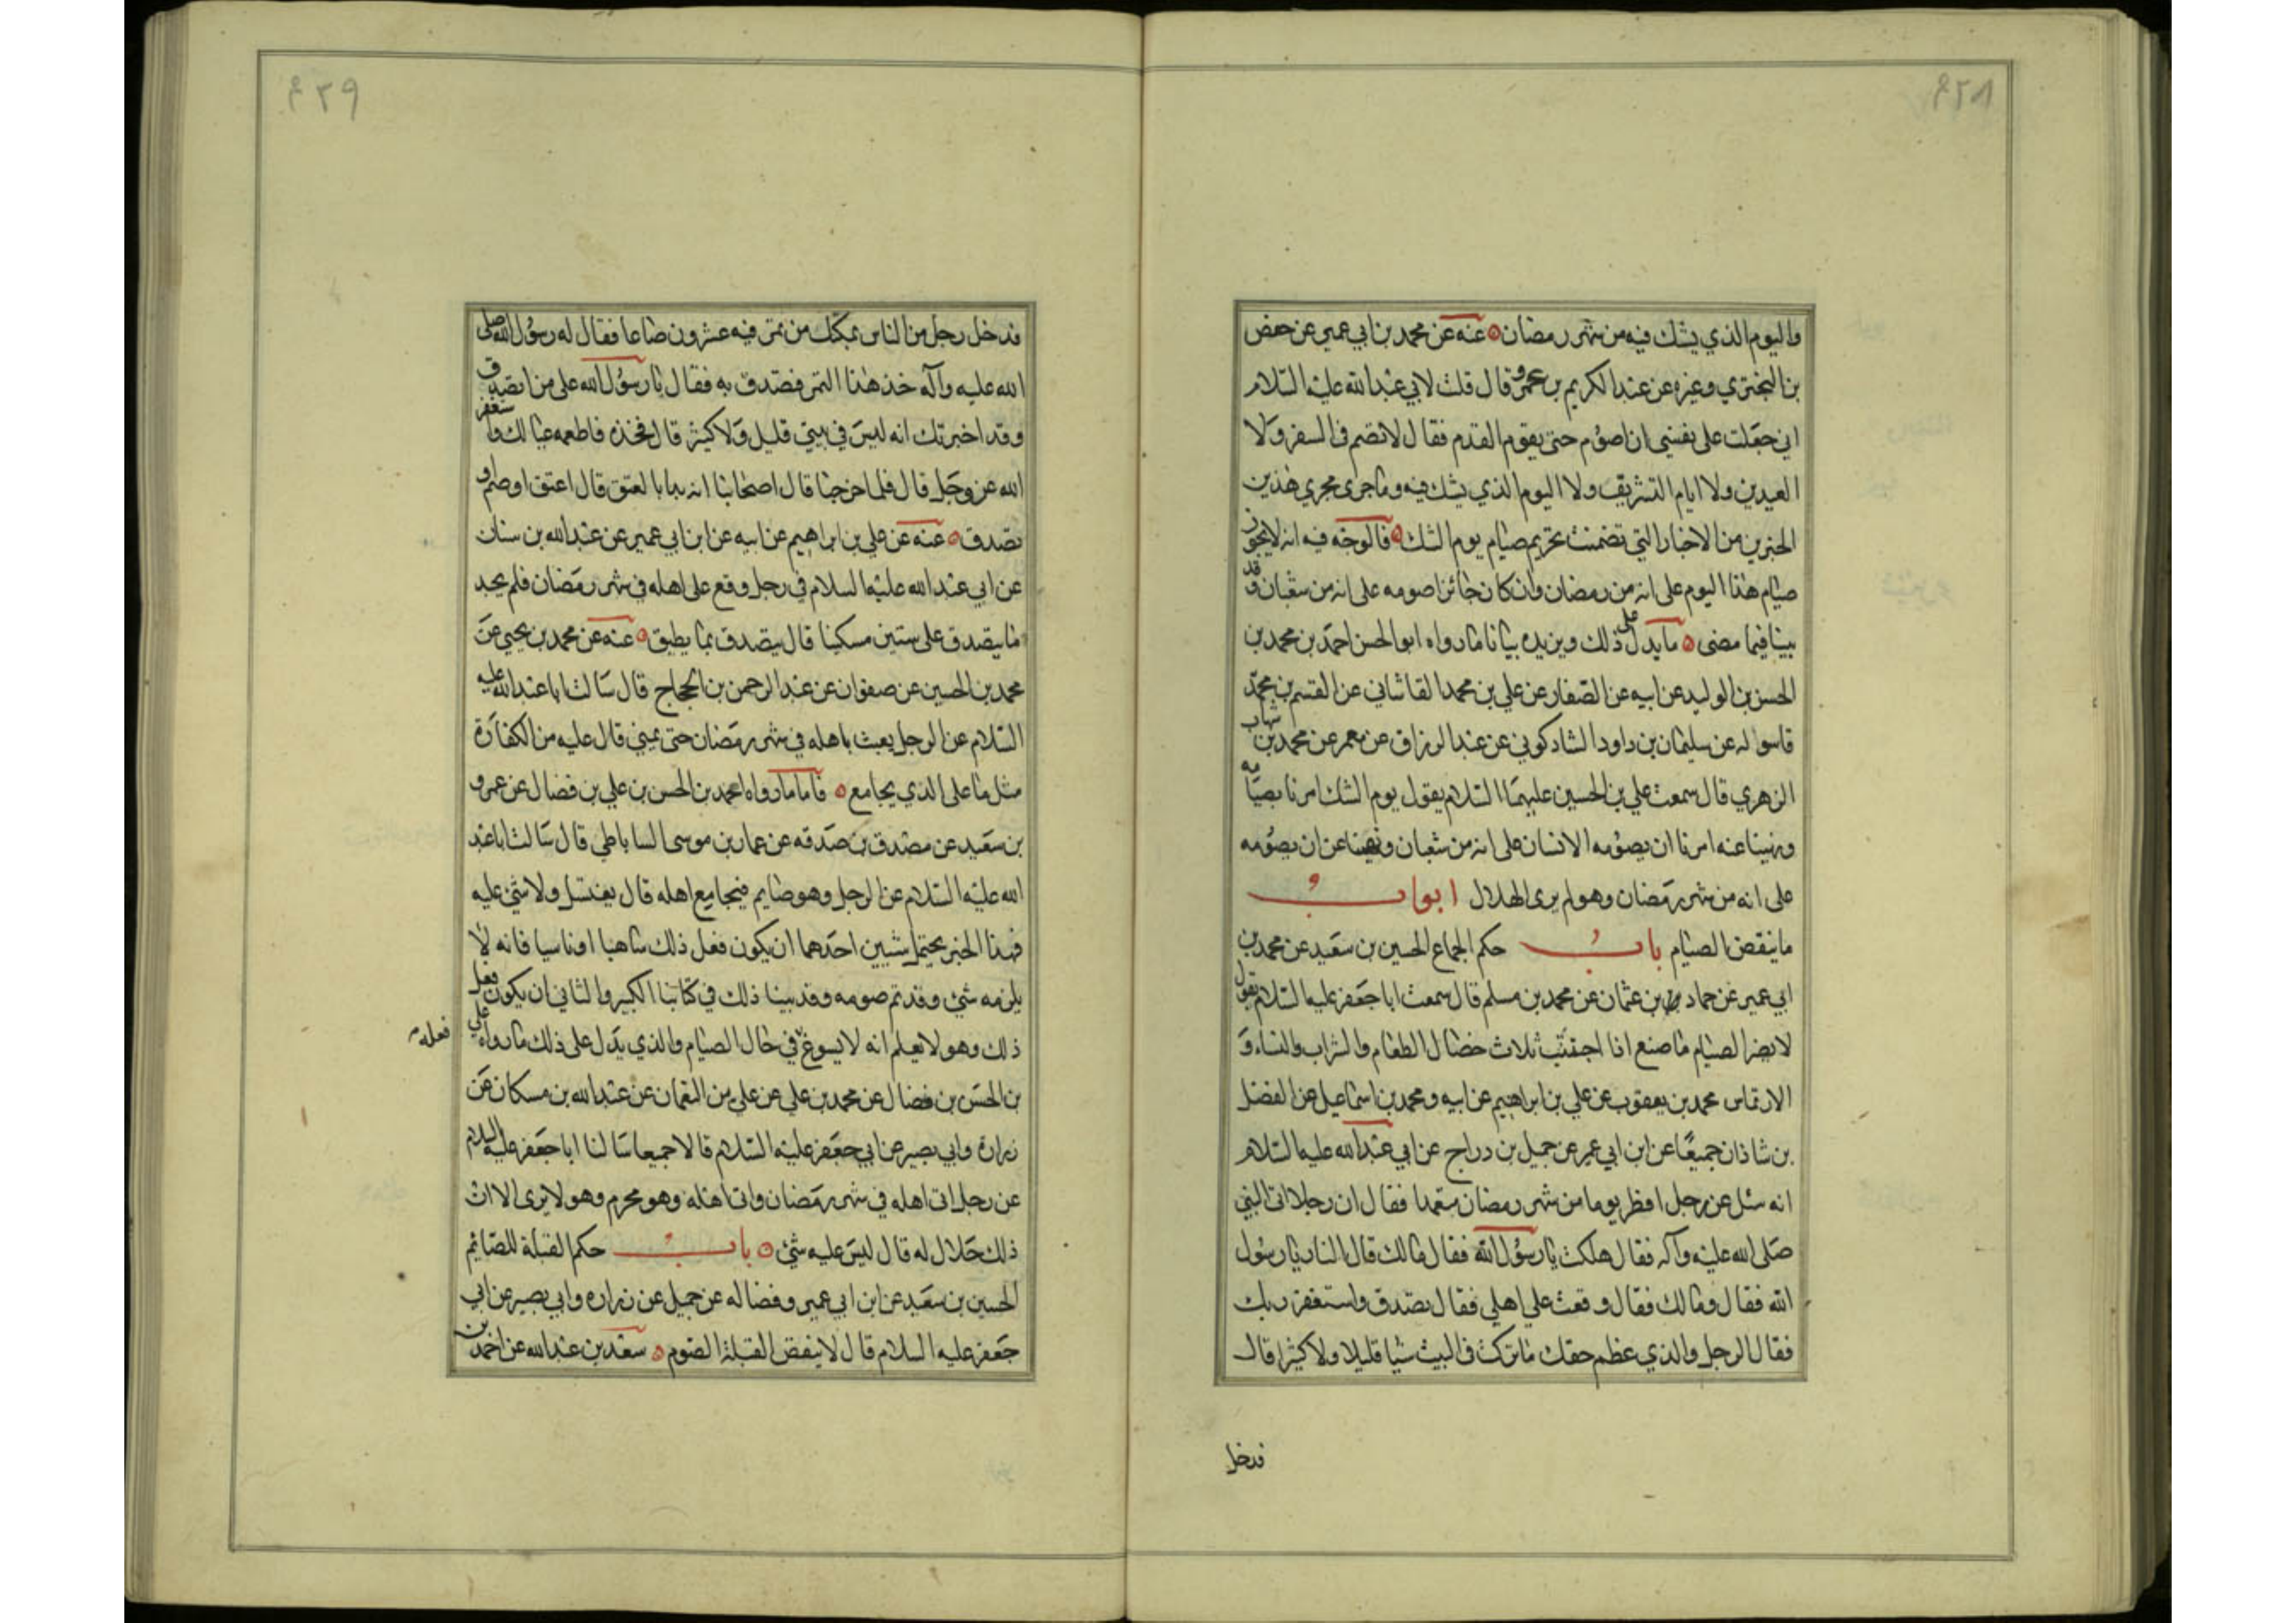 ٤٢٨
واليوم الذي يشك فيه من شهر رمضان عنه عن محمد بن ابي عمير عن حفص
بن البختري وغيره عن عبد الكريم بن عمرو قال قلت لابي عبد الله عليه السلام
اني جعلت على نفسي ان اصوم حتى يقوم القدم فقال لا تصم في السفر ولا
العيدين ولا ايام التشريق ولا اليوم الذي يشك فيه وما جرى مجرى هذين
الخبرين من الاخبار التي تضمنت تحريم صيام يوم الشك فالوجه فيه انه لا يجوز
صيام هذا اليوم على انه من رمضان وان كان جائزا صومه على انه من شعبان وقد
بينا فيما مضى ما يدل على ذلك ويزيده بيانا ما رواه ابو الحسن احمد بن محمد بن
الحسن بن الوليد عن ابيه عن الصفار عن علي بن محمد القاشاني عن القسم بن محمد
قاسوله عن سليمان بن داود الشاذكوني عن عبد الرزاق عن معمر عن محمد بن شهاب
الزهري قال سمعت علي بن الحسين عليهما السلام يقول يوم الشك امرنا بصيامه
ونهينا عنه امرنا ان يصومه الانسان على انه من شعبان ونهينا عن ان يصومه
على انه من شهر رمضان وهو لم يرى الهلال ابواب
ما ينقض الصيام باب حكم الجماع الحسين بن سعيد عن محمد بن
ابي عمير عن حماد بن عثمان عن محمد بن مسلم قال سمعت ابا جعفر عليه السلام يقول
لا يضر الصيام ما صنع اذا اجتنب ثلاث خصال الطعام والشراب والنساء و
الارتماس محمد بن يعقوب عن علي بن ابراهيم عن ابيه ومحمد بن اسماعيل عن الفضل
بن شاذان جميعا عن ابن ابي عمير عن جميل بن دراج عن ابي عبد الله عليه السلام
انه سئل عن رجل افطر يوما من شهر رمضان متعمدا فقال ان رجلا اتى النبي
صلى الله عليه وآله فقال هلكت يا رسول الله فقال مالك قال النار يا رسول
الله فقال ومالك فقال وقعت على اهلي فقال تصدق واستغفر ربك
فقال الرجل والذي عظم حقك ما تركت في البيت شيا قليلا ولا كثيرا قال
فدخل
٤٢٩
فدخل رجل من الناس بمكتل من تمر فيه عشرون صاعا فقال له رسول الله صلى
الله عليه وآله خذ هذا التمر فتصدق به فقال يا رسول الله على من اتصدق
وقد اخبرتك انه ليس في بيتي قليل ولا كثير قال فخذه فاطعمه عيالك واستغفر
الله عز وجل قال فلما خرجنا قال اصحابنا انه بدا بالعتق قال اعتق او صم او
تصدق عنه عن علي بن ابراهيم عن ابيه عن ابن ابي عمير عن عبد الله بن سنان
عن ابي عبد الله عليه السلام في رجل وقع على اهله في شهر رمضان فلم يجد
ما يتصدق على ستين مسكينا قال يتصدق بما يطيق عنه عن محمد بن يحيى عن
محمد بن الحسين عن صفوان عن عبد الرحمن بن الحجاج قال سالت ابا عبد الله عليه
السلام عن الرجل يعبث باهله في شهر رمضان حتى يمني قال عليه من الكفارة
مثل ما على الذي يجامع فاما ما رواه احمد بن الحسن بن علي بن فضال عن عمرو
بن سعيد عن مصدق بن صدقه عن عمار بن موسى الساباطي قال سالت ابا عبد
الله عليه السلام عن الرجل وهو صايم فيجامع اهله قال يغتسل ولا شئ عليه
فهذا الخبر يحتمل شيين احدهما ان يكون فعل ذلك ساهيا او ناسيا فانه لا
يلزمه شئ وقد تم صومه وقد بينا ذلك في كتابنا الكبير والثاني ان يكون فعل
ذلك وهو لا يعلم انه لا يسوغ في حال الصيام والذي يدل على ذلك ما رواه علي
فعله
بن الحسن بن فضال عن محمد بن علي عن علي بن النعمان عن عبد الله بن مسكان عن
زرارة وابي بصير عن ابي جعفر عليه السلام قالا جميعا سالنا ابا جعفر عليه السلام
عن رجل اتى اهله في شهر رمضان واتى اهله وهو محرم وهو لا يرى الا ان
ذلك حلال له قال ليس عليه شئ باب حكم القبلة للصايم
الحسين بن سعيد عن ابن ابي عمير وفضاله عن جميل عن زراره وابي بصير عن ابي
جعفر عليه السلام قال لا ينقض القبلة الصوم سعد بن عبد الله عن احمد بن